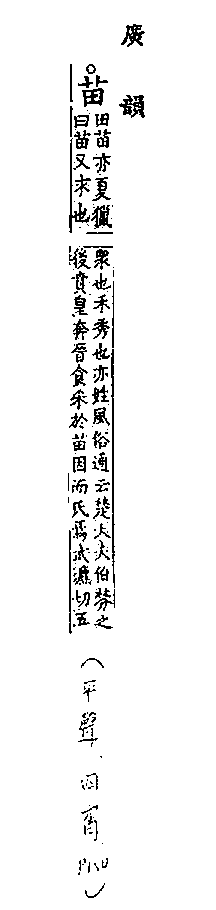 廣韻
苗
田苗亦夏獵
曰苗又求也
衆也禾秀也亦姓風俗通云楚大夫伯棼之
後賁皇奔晉食采於苗因而氏焉武瀌切五
（平聲、四宵）